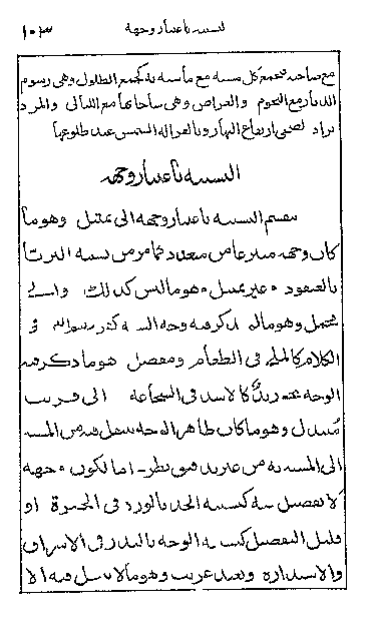 التشبيه باعتبار وجهه ١٠٣
مع صاحبه فتجمع كل مشبه مع ما شبه به كجمع الطلول وهي رسوم
الديار مع النجوم والعراص وهي ساحاتها مع الليالي والمراد
براد الضحى ارتفاع النهار وبالغزالة الشمس عند طلوعها
التشبيه باعتبار وجهه
ينقسم التشبيه باعتبار وجهه الى تمثيل وهو ما
كان وجهه منتزعا من متعدد كما مر من تشبيه الثريا
بالعنقود وغير تمثيل وهو ما ليس كذلك والى
مجمل وهو ما لم يذكر فيه وجه الشبه كقوله النحو في
الكلام كالملح في الطعام ومفصل هو ما ذكر فيه
الوجه نحو زيدٌ كالاسد في الشجاعة الى قريب
مُبتذل وهو ما كان ظاهر الوجه ينتقل فيه من المشبه
الى المشبه به من غير تدقيق نظر اما لكون وجهه
لا تفصيل فيه كتشبيه الخد بالورد في الحمرة او
قليل التفصيل كتشبيه الوجه بالبدر في الاشراق
والاستدارة وبعيد غريب وهو ما لا ينتقل فيه الا